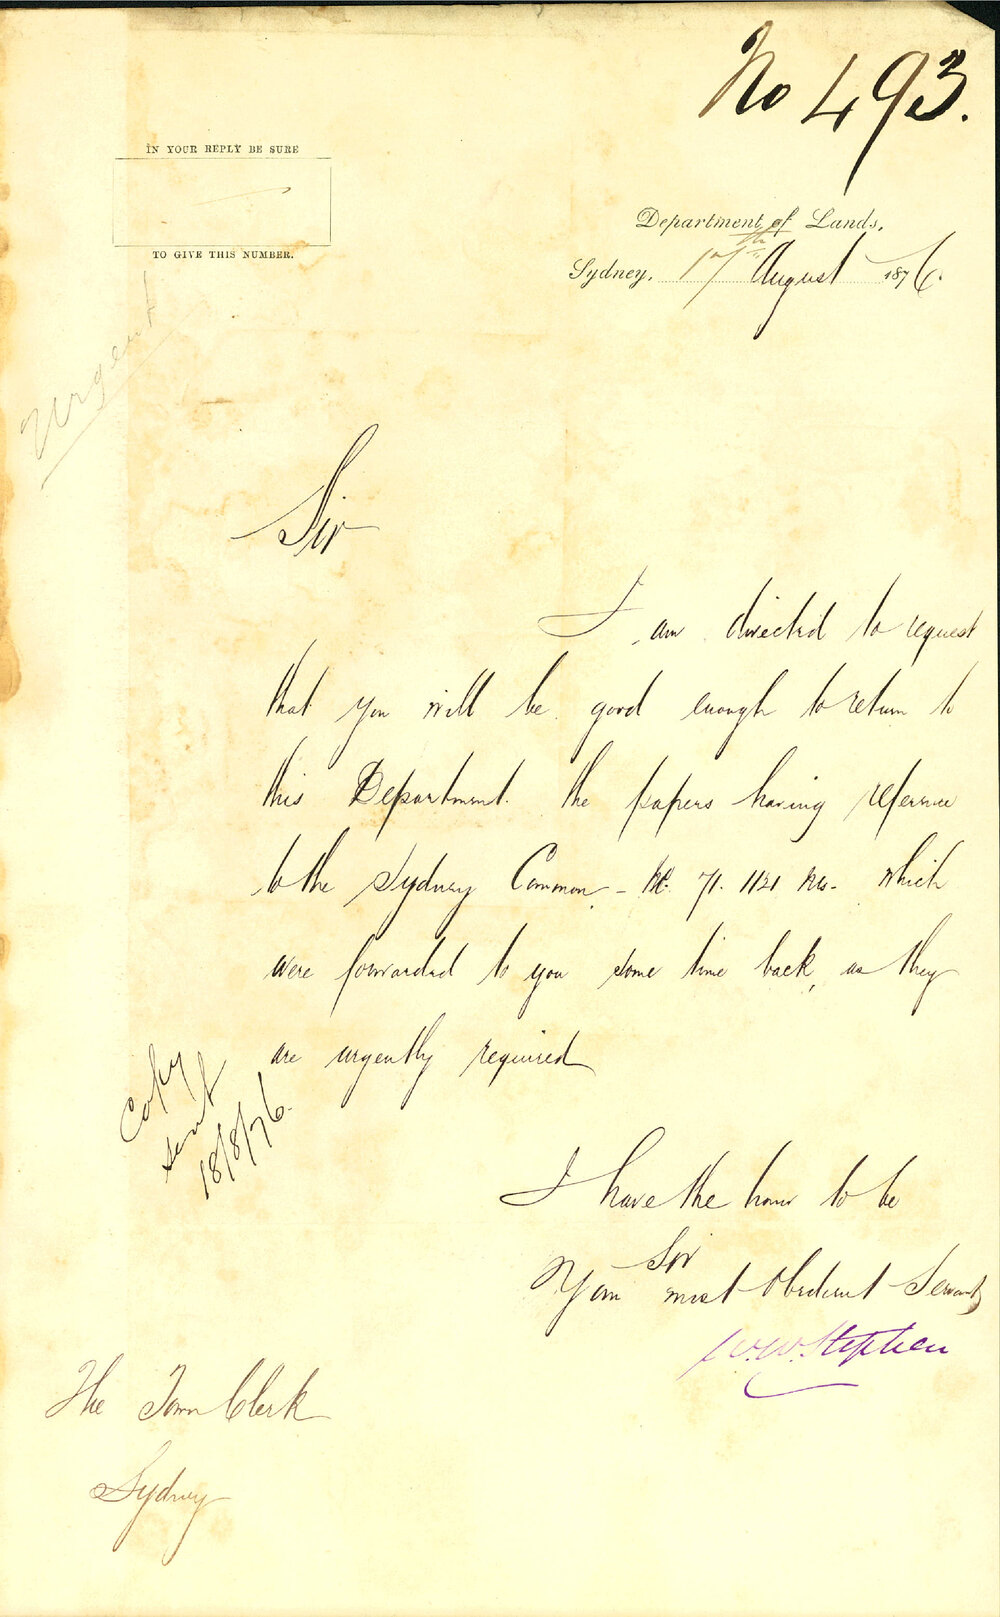 No 493.
IN YOUR REPLY BE SURE
TO GIVE THIS NUMBER.
Department of Lands,
Sydney, 17th August 1876.
Urgent
Sir
I am directed to request
that you will be good enough to return to
this Department the papers having reference
to the Sydney Common - 71. 1121 which
were forwarded to you some time back, as they
are urgently required
Copy
sent
18/8/76.
I have the honor to be
Sir
Your most obedient Servant
W.W. Stephen
The Town Clerk
Sydney